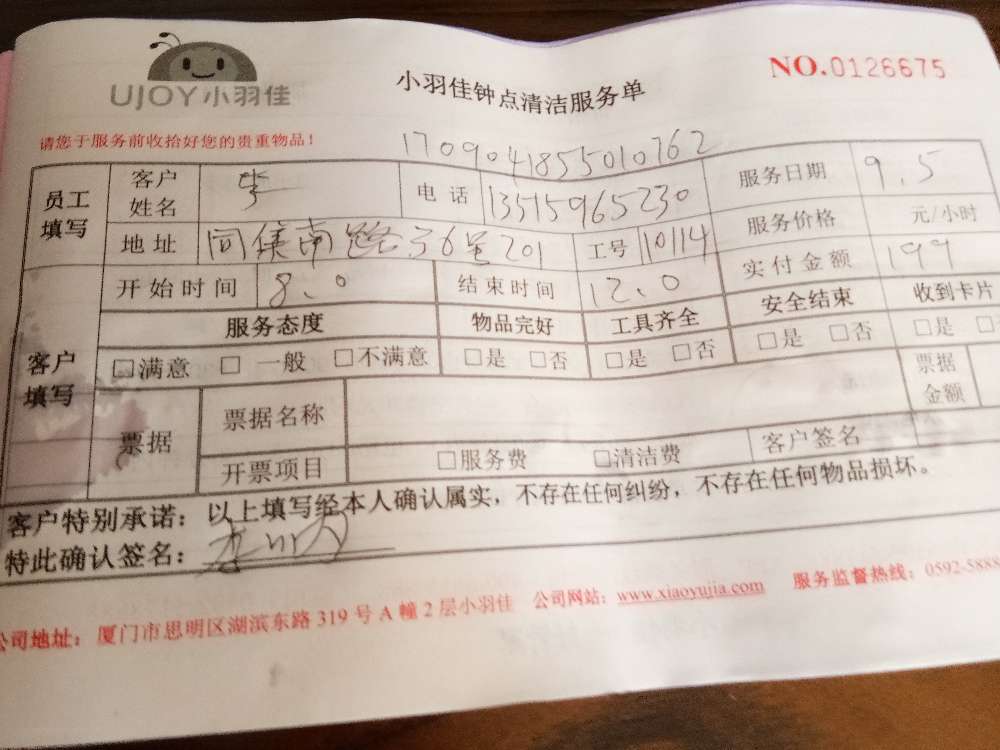 UJOY小羽佳
小羽佳钟点清洁服务单
NO.0126675
请您于服务前收拾好您的贵重物品！
1709041855010762
员工填写 客户姓名 李 电话 13515965230 服务日期 9.5
地址 同集南路36号201 工号 10114 服务价格 元/小时
客户填写 开始时间 8.0 结束时间 12.0 实付金额 199
服务态度 物品完好 工具齐全 安全结束 收到卡片
□满意 □一般 □不满意 □是 □否 □是 □否 □是 □否 □是
票据 票据名称 票据金额
开票项目 □服务费 □清洁费 客户签名
客户特别承诺：以上填写经本人确认属实，不存在任何纠纷，不存在任何物品损坏。
特此确认签名：
公司地址：厦门市思明区湖滨东路319号A幢2层小羽佳 公司网站：www.xiaoyujia.com 服务监督热线：0592-5888